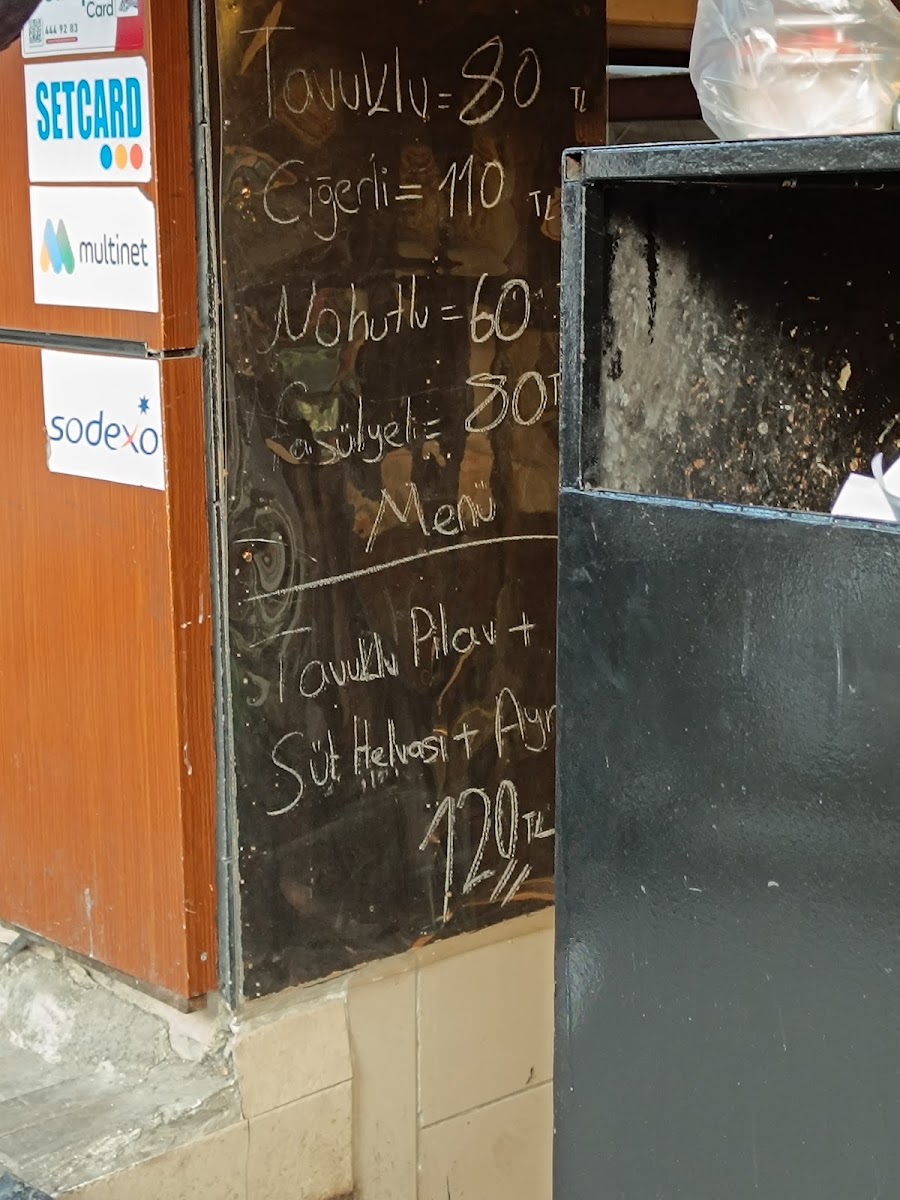 Card
444 92 83
SETCARD
multinet
sodexo
Tavuklu = 80 TL
Ciğerli = 110 TL
Nohutlu = 60
fasülyeli = 80 T
Menü
Tavuklu Pilav +
Süt Helvası + Ayr
120 TL